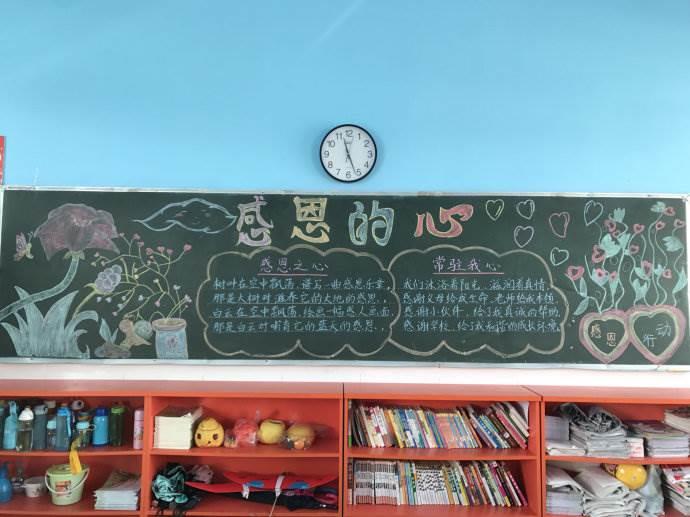 感恩的心
感恩之心
树叶在空中飘荡,谱写一曲感恩乐章,
那是大树对滋养它的大地的感恩..
白云在空中飘荡,绘画一幅感人画面,
那是白云对哺育它的蓝天的感恩..
常驻我心
我们沐浴着阳光,滋润着真情,
感谢父母给我生命,老师给我本领
感谢小伙伴,给了我真诚的帮助,
感谢学校,给了我和谐的成长环境
感恩
行动